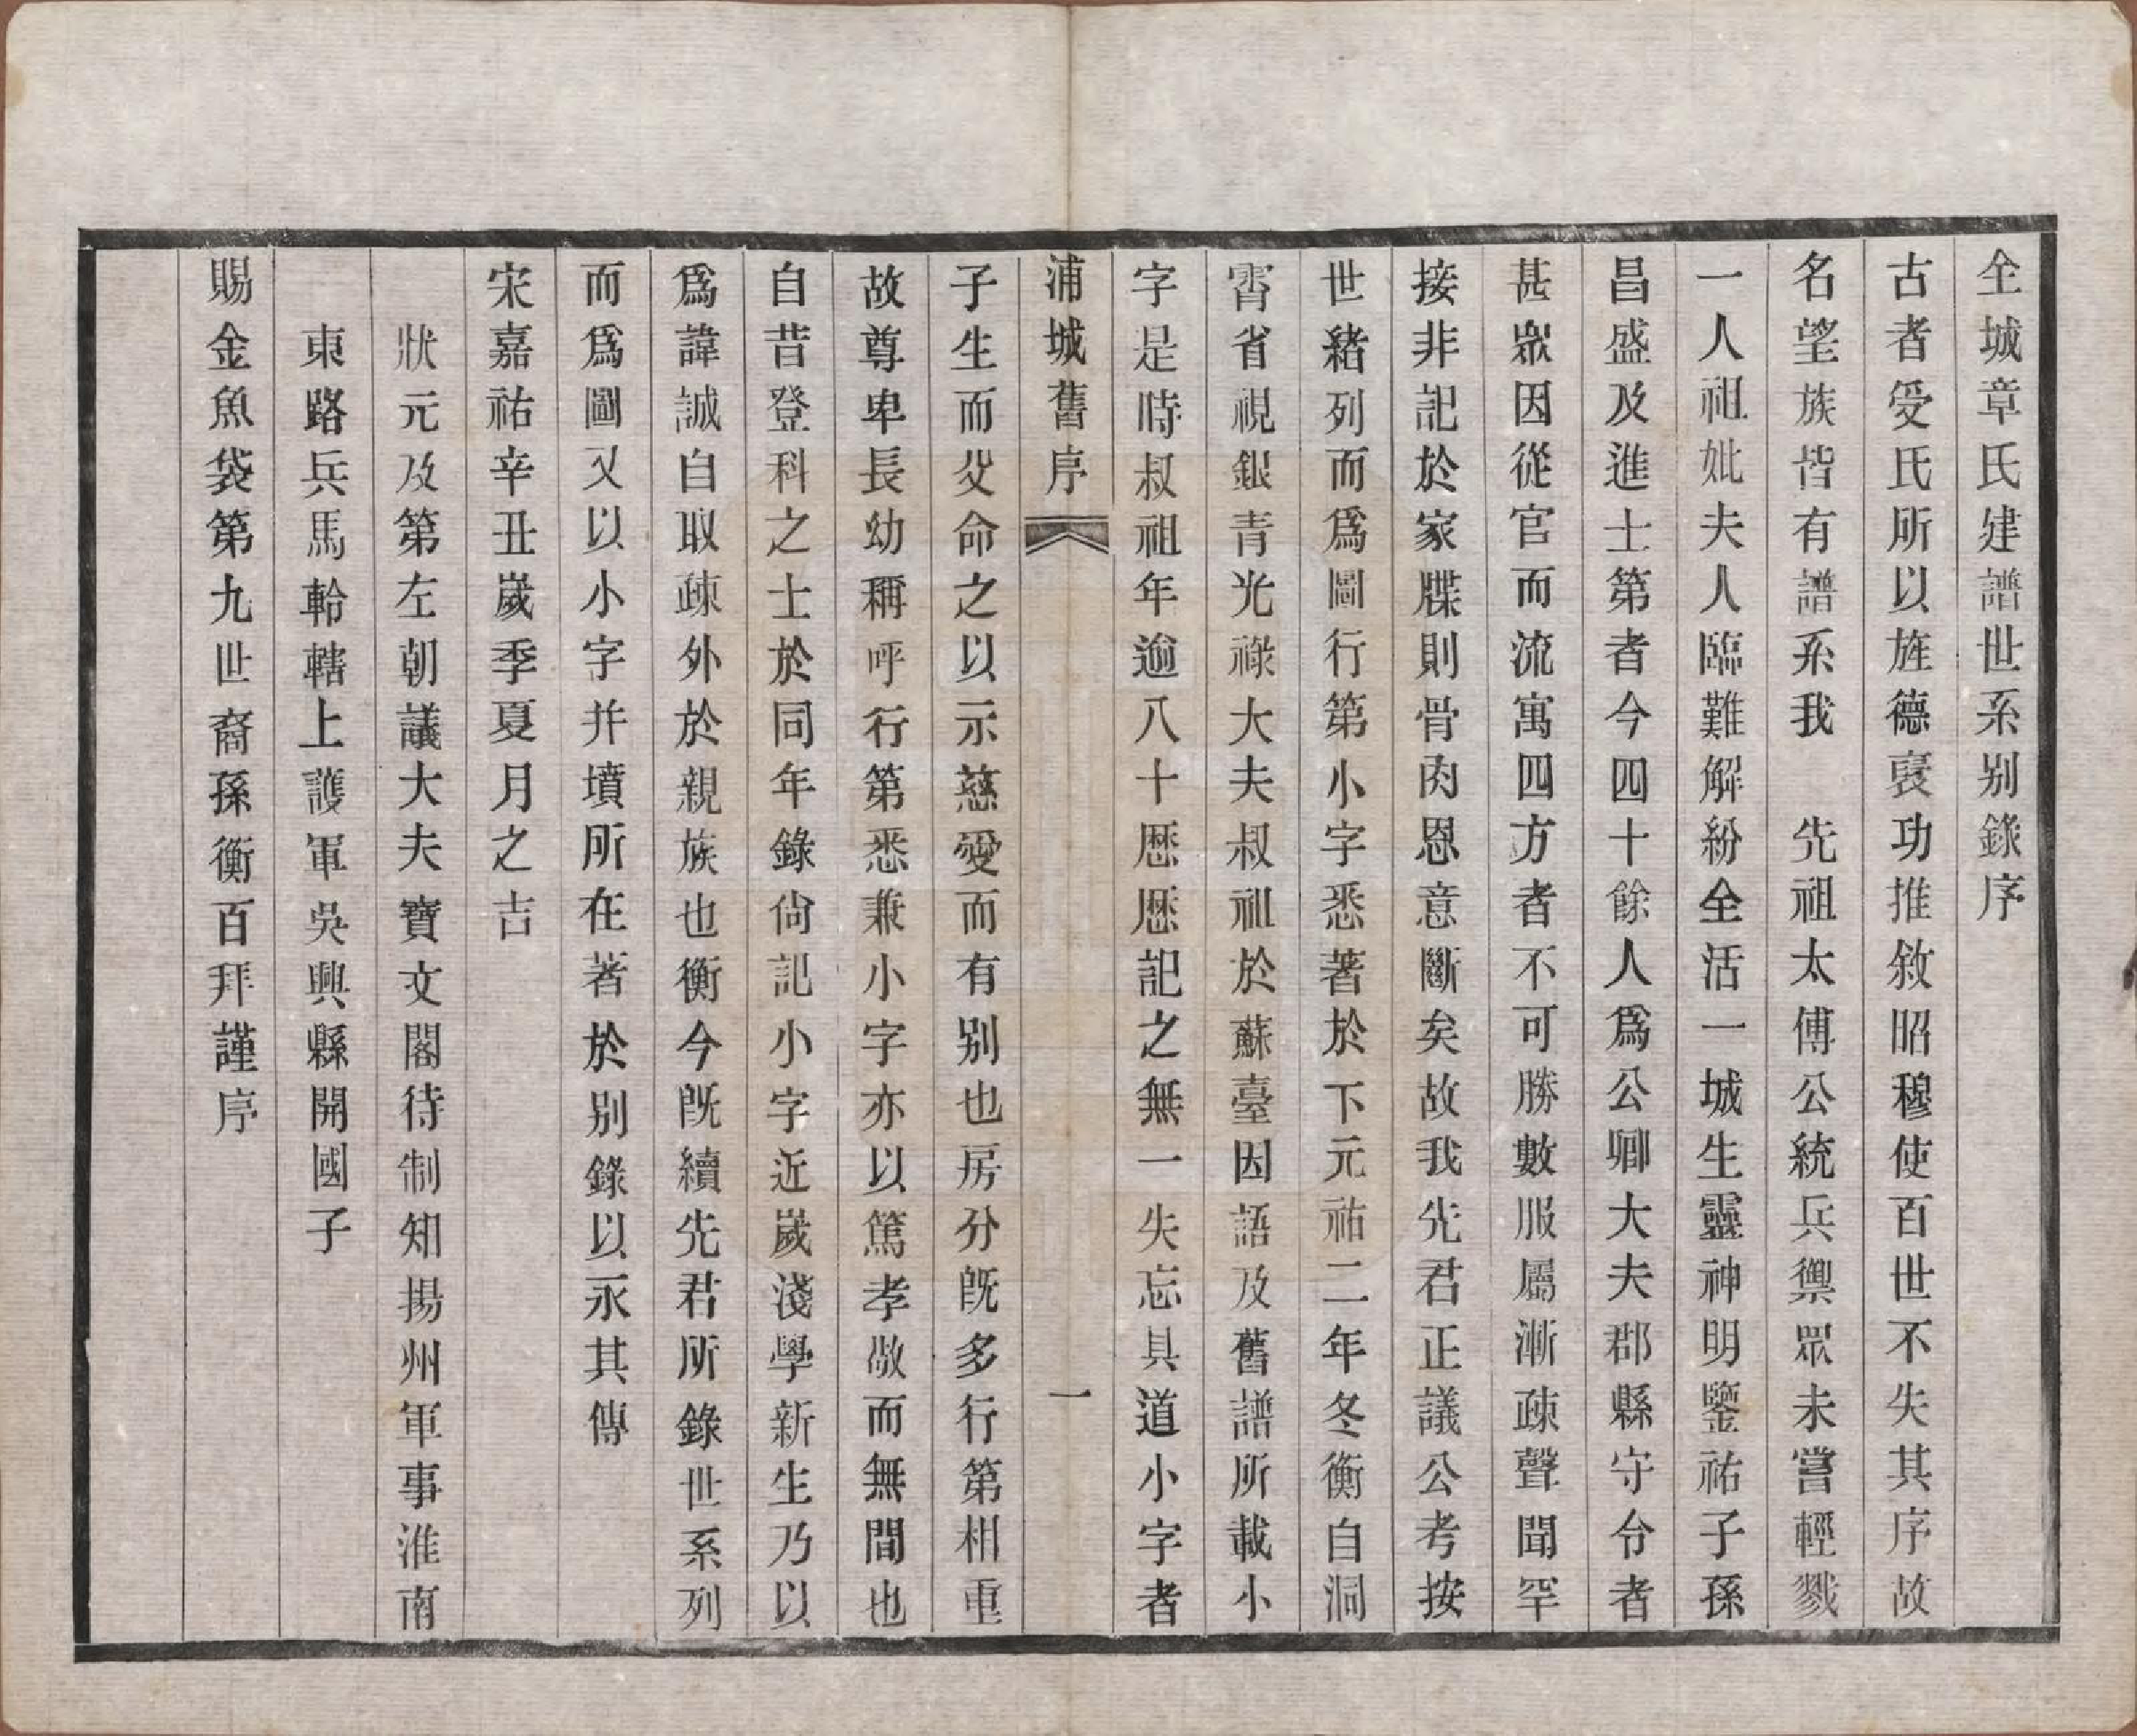 全城章氏建譜世系別錄序
古者受氏所以旌德襃功推敘昭穆使百世不失其序故
名望族皆有譜系我　先祖太傅公統兵禦眾未嘗輕戮
一人祖妣夫人臨難解紛全活一城生靈神明鑒祐子孫
昌盛及進士第者今四十餘人爲公卿大夫郡縣守令者
甚眾因從官而流寓四方者不可勝數服屬漸疎聲聞罕
接非記於家牒則骨肉恩意斷矣故我先君正議公考按
世緒列而爲圖行第小字悉著於下元祐二年冬衡自洞
霄省視銀青光祿大夫叔祖於蘇臺因語及舊譜所載小
字是時叔祖年逾八十歷歷記之無一失忘具道小字者
浦城舊序　一
子生而父命之以示慈愛而有別也房分旣多行第相重
故尊卑長幼稱呼行第悉兼小字亦以篤孝敬而無間也
自昔登科之士於同年錄尙記小字近歲淺學新生乃以
爲諱誠自取疎外於親族也衡今旣續先君所錄世系列
而爲圖又以小字并墳所在著於別錄以永其傳
宋嘉祐辛丑歲季夏月之吉
狀元及第左朝議大夫寶文閣待制知揚州軍事淮南
東路兵馬軨轄上護軍吳興縣開國子
賜金魚袋第九世裔孫衡百拜謹序